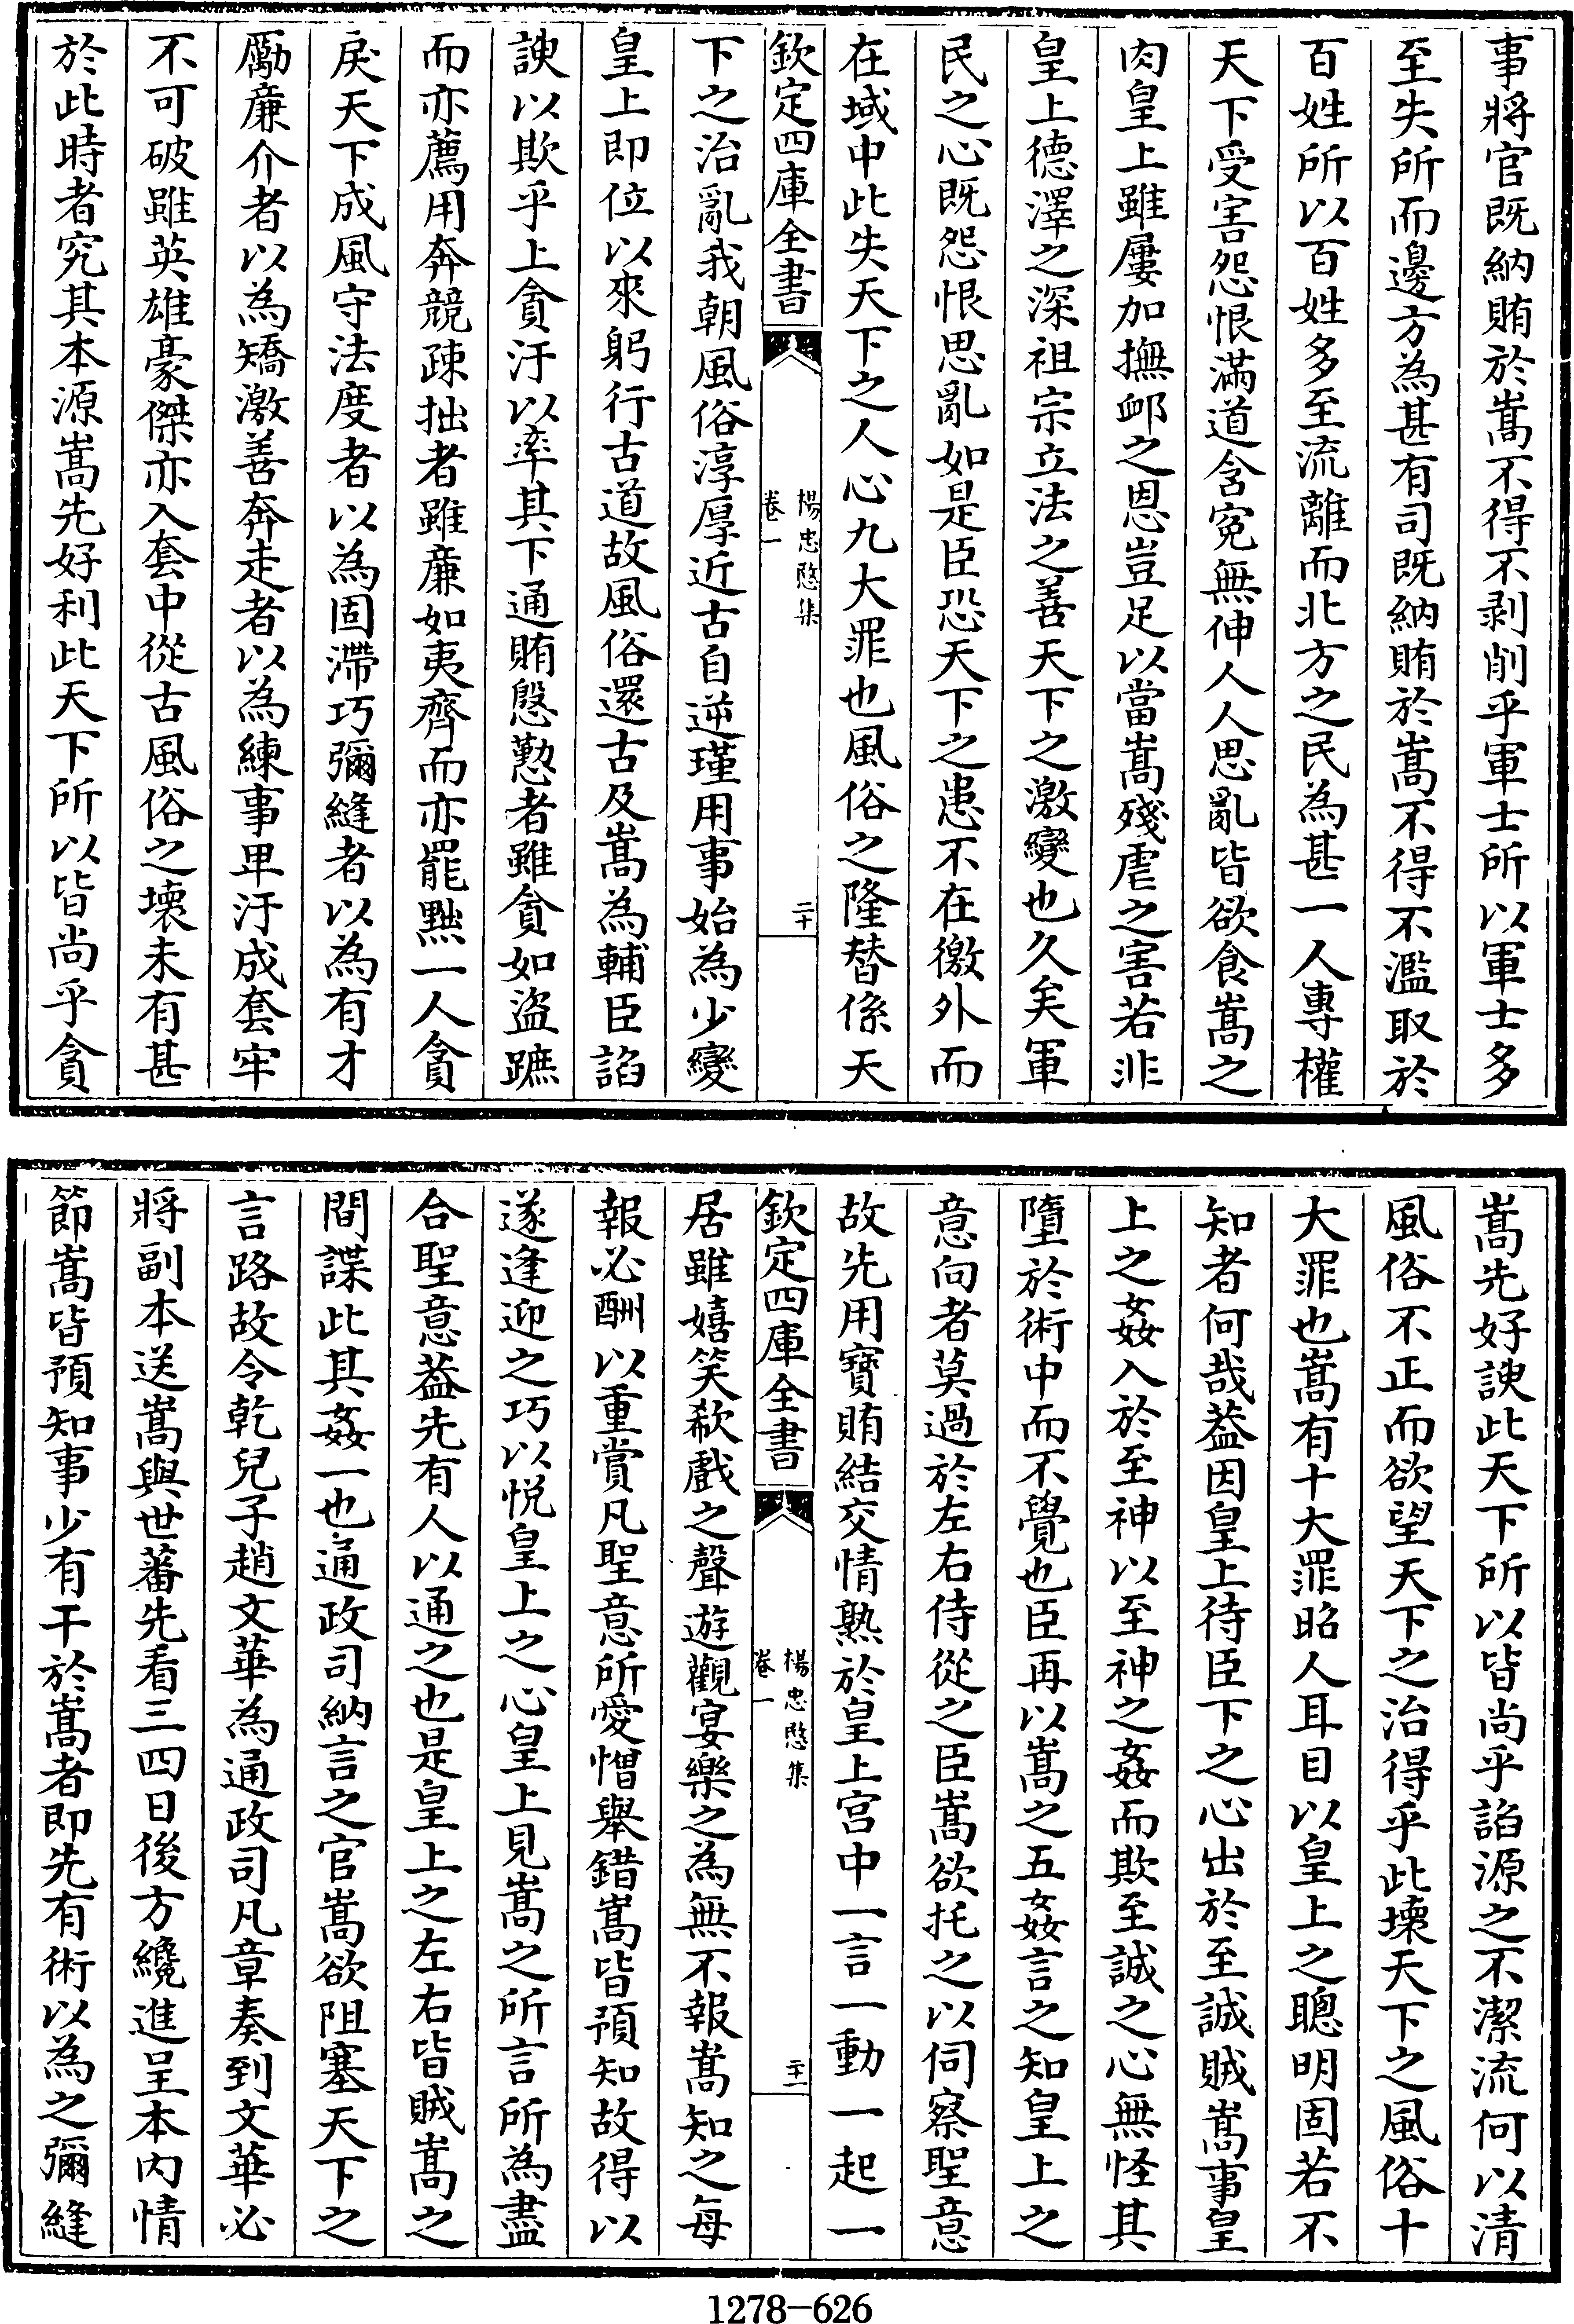 事將官既納賄於嵩不得不剥削乎軍士所以軍士多
至失所而邊方為甚有司既納賄於嵩不得不濫取於
百姓所以百姓多至流離而北方之民為甚一人專權
天下受害怨恨滿道含寃無伸人人思亂皆欲食嵩之
肉皇上雖屢加撫䘏之恩豈足以當嵩殘虐之害若非
皇上德澤之深祖宗立法之善天下之激變也久矣軍
民之心既怨恨思亂如是臣恐天下之患不在徼外而
在域中此失天下之人心九大罪也風俗之隆替係天
欽定四庫全書
楊忠愍集
卷一
二十
下之治亂我朝風俗淳厚近古自逆瑾用事始為少變
皇上即位以來躬行古道故風俗還古及嵩為輔臣諂
諛以欺乎上貪汙以率其下通賄慇懃者雖貪如盜蹠
而亦薦用奔競疎拙者雖亷如夷齊而亦罷黜一人貪
戾天下成風守法度者以為固滯巧彌縫者以為有才
勵亷介者以為矯激善奔走者以為練事卑汙成套牢
不可破雖英雄豪傑亦入套中從古風俗之壞未有甚
於此時者究其本源嵩先好利此天下所以皆尚乎貪
嵩先好諛此天下所以皆尚乎諂源之不潔流何以清
風俗不正而欲望天下之治得乎此壞天下之風俗十
大罪也嵩有十大罪昭人耳目以皇上之聰明固若不
知者何哉葢因皇上待臣下之心出於至誠賊嵩事皇
上之姦入於至神以至神之姦而欺至誠之心無怪其
墮於術中而不覺也臣再以嵩之五姦言之知皇上之
意向者莫過於左右侍從之臣嵩欲托之以伺察聖意
故先用寶賄結交情熟於皇上宫中一言一動一起一
欽定四庫全書
楊忠愍集
卷一
二十一
居雖嬉笑欷戲之聲遊觀宴樂之為無不報嵩知之每
報必酬以重賞凡聖意所愛憎舉錯嵩皆預知故得以
遂逢迎之巧以悦皇上之心皇上見嵩之所言所為盡
合聖意葢先有人以通之也是皇上之左右皆賊嵩之
間諜此其姦一也通政司納言之官嵩欲阻塞天下之
言路故令乾兒子趙文華為通政司凡章奏到文華必
將副本送嵩與世蕃先看三四日後方纔進呈本内情
節嵩皆預知事少有干於嵩者即先有術以為之彌縫
1278-626